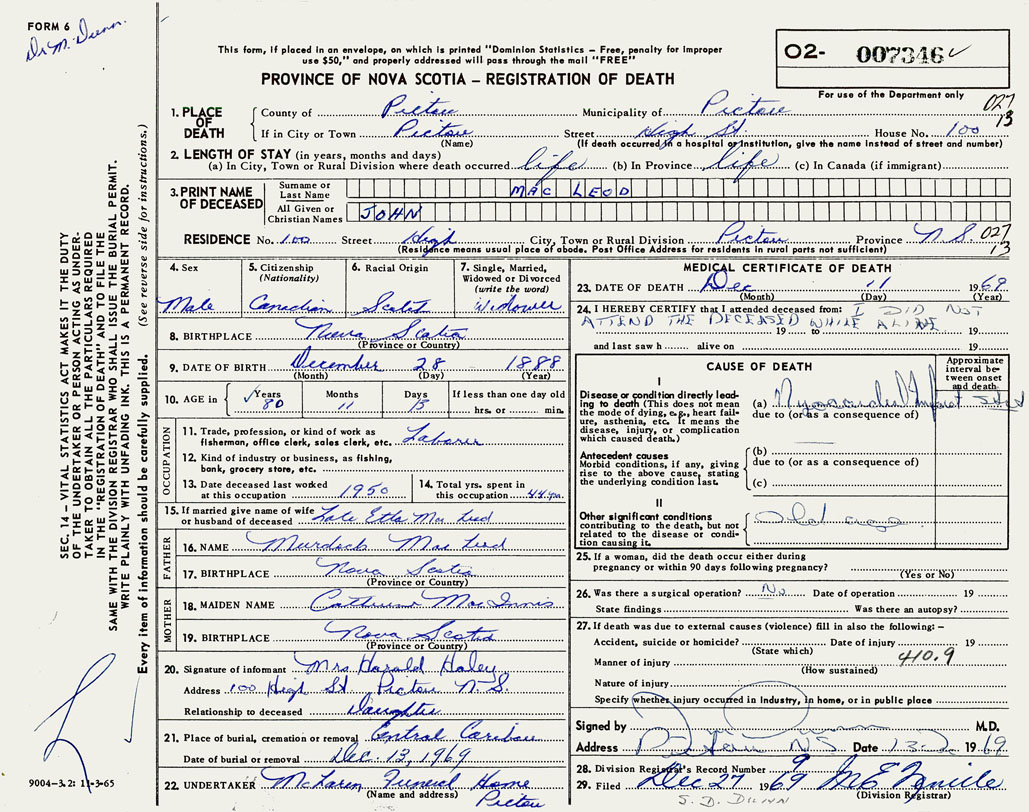 FORM 6
Dr M. Dunn.
This form, if placed in an envelope, on which is printed "Dominion Statistics – Free, penalty for improper
use $50," and properly addressed will pass through the mail "FREE"
PROVINCE OF NOVA SCOTIA – REGISTRATION OF DEATH
O2- 007346
For use of the Department only
027
13
1. PLACE OF DEATH County of Pictou Municipality of Pictou
If in City or Town Pictou Street High St. House No. 100
(Name) (If death occurred in a hospital or institution, give the name instead of street and number)
2. LENGTH OF STAY (in years, months and days)
(a) In City, Town or Rural Division where death occurred life (b) In Province life (c) In Canada (if immigrant)
3. PRINT NAME OF DECEASED Surname or Last Name MAC LEOD
All Given or Christian Names JOHN
RESIDENCE No. 100 Street High City, Town or Rural Division Pictou Province N.S. 027
(Residence means usual place of abode. Post Office Address for residents in rural parts not sufficient) 13
4. Sex Male
5. Citizenship (Nationality) Canadian
6. Racial Origin Scotch
7. Single, Married, Widowed or Divorced (write the word) Widower
8. BIRTHPLACE Nova Scotia
(Province or Country)
9. DATE OF BIRTH December 28 1888
(Month) (Day) (Year)
10. AGE in Years 80 Months 11 Days 13 If less than one day old hrs. or min.
OCCUPATION
11. Trade, profession, or kind of work as
fisherman, office clerk, sales clerk, etc. Laborer
12. Kind of industry or business, as fishing,
bank, grocery store, etc.
13. Date deceased last worked
at this occupation 1950
14. Total yrs. spent in
this occupation 44 yrs.
15. If married give name of wife
or husband of deceased Late Etta Mac Leod
FATHER
16. NAME Murdoch Mac Leod
17. BIRTHPLACE Nova Scotia
(Province or Country)
MOTHER
18. MAIDEN NAME Catherine MacInnis
19. BIRTHPLACE Nova Scotia
(Province or Country)
20. Signature of informant Mrs Harold Haley
Address 100 High St Pictou N.S.
Relationship to deceased Daughter
21. Place of burial, cremation or removal Central Caribou
Date of burial or removal Dec. 13, 1969
22. UNDERTAKER McLaren Funeral Home
(Name and address) Pictou
MEDICAL CERTIFICATE OF DEATH
23. DATE OF DEATH Dec 11 1969
(Month) (Day) (Year)
24. I HEREBY CERTIFY that I attended deceased from: I DID NOT
ATTEND THE DECEASED WHILE ALIVE
19 to 19
and last saw h alive on 19
CAUSE OF DEATH
Approximate interval between onset and death
I
Disease or condition directly leading to death (This does not mean the mode of dying, e.g., heart failure, asthenia, etc. It means the disease, injury, or complication which caused death.)
(a) Myocardial Infarct
due to (or as a consequence of)
Antecedent causes
Morbid conditions, if any, giving rise to the above cause, stating the underlying condition last.
(b)
due to (or as a consequence of)
(c)
II
Other significant conditions
contributing to the death, but not related to the disease or condition causing it.
Old age
25. If a woman, did the death occur either during
pregnancy or within 90 days following pregnancy?
(Yes or No)
26. Was there a surgical operation? No Date of operation 19
State findings Was there an autopsy?
27. If death was due to external causes (violence) fill in also the following: –
Accident, suicide or homicide? Date of injury 19
(State which) 410.9
Manner of injury
(How sustained)
Nature of injury
Specify whether injury occurred in industry, in home, or in public place
Signed by M.D.
Address Pictou N.S. Date 1969
28. Division Registrar's Record Number 9
29. Filed Dec 27 1969
(Division Registrar)
S. D. DUNN
SEC. 14 – VITAL STATISTICS ACT MAKES IT THE DUTY
OF THE UNDERTAKER OR PERSON ACTING AS UNDER-
TAKER TO OBTAIN ALL THE PARTICULARS REQUIRED
IN THE "REGISTRATION OF DEATH" AND TO FILE THE
SAME WITH THE DIVISION REGISTRAR WHO SHALL ISSUE THE BURIAL PERMIT.
WRITE PLAINLY WITH UNFADING INK. THIS IS A PERMANENT RECORD.
Every item of information should be carefully supplied. (See reverse side for instructions.)
9004-3.2: 11-3-65